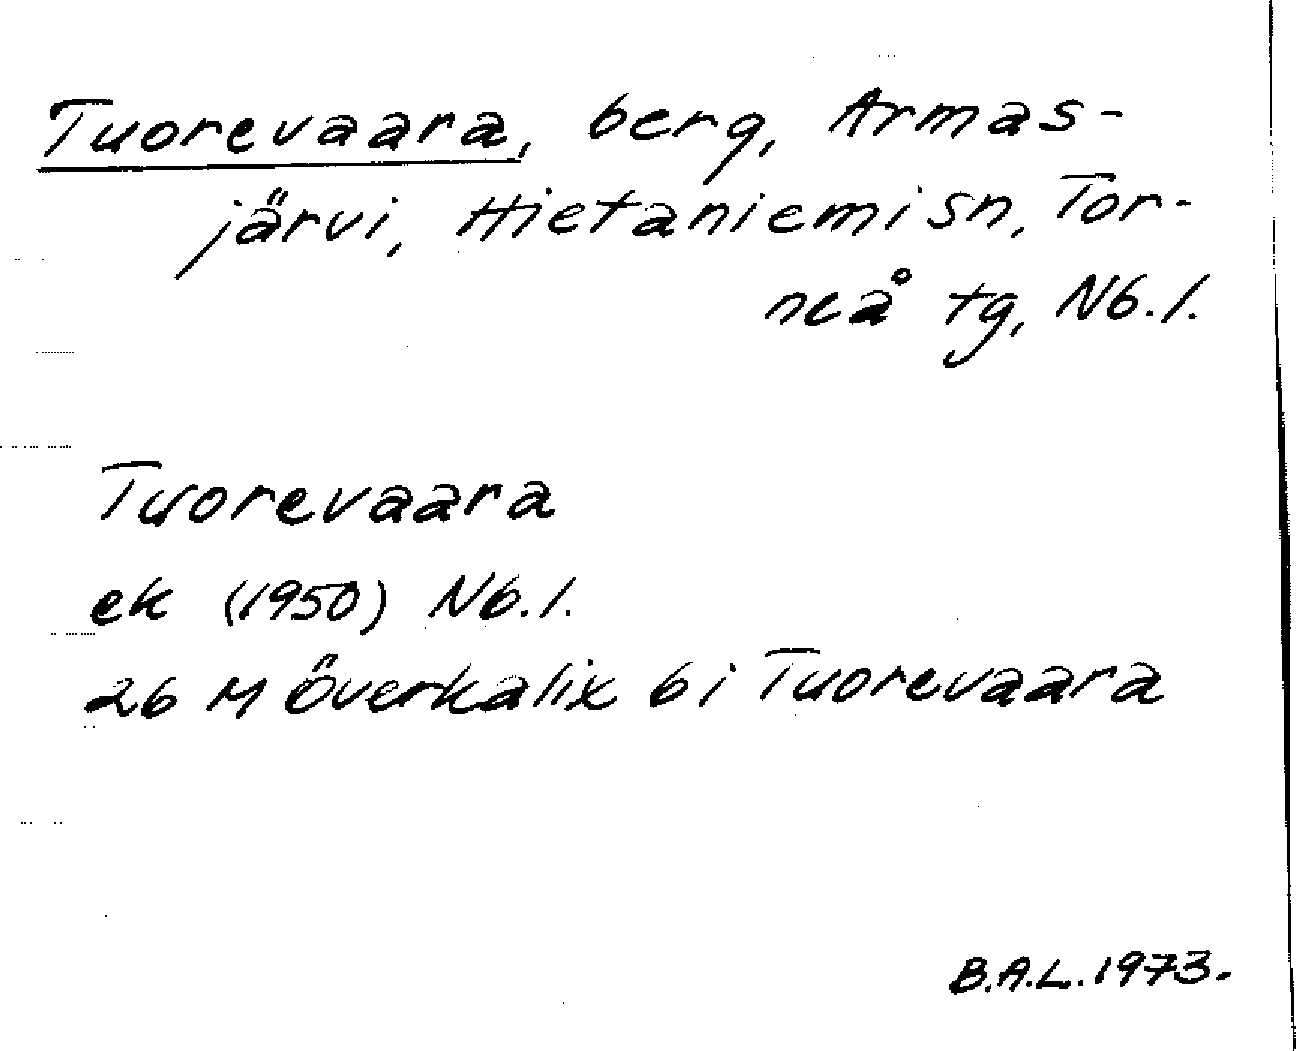 Tuorevaara, berg, Armas-
järvi, Hietaniemi sn, Tor-
neå tg, Nb.l.
Tuorevaara
ek (1950) Nb.l.
26 M Överkalix 6i Tuorevaara
B.A.L. 1973.